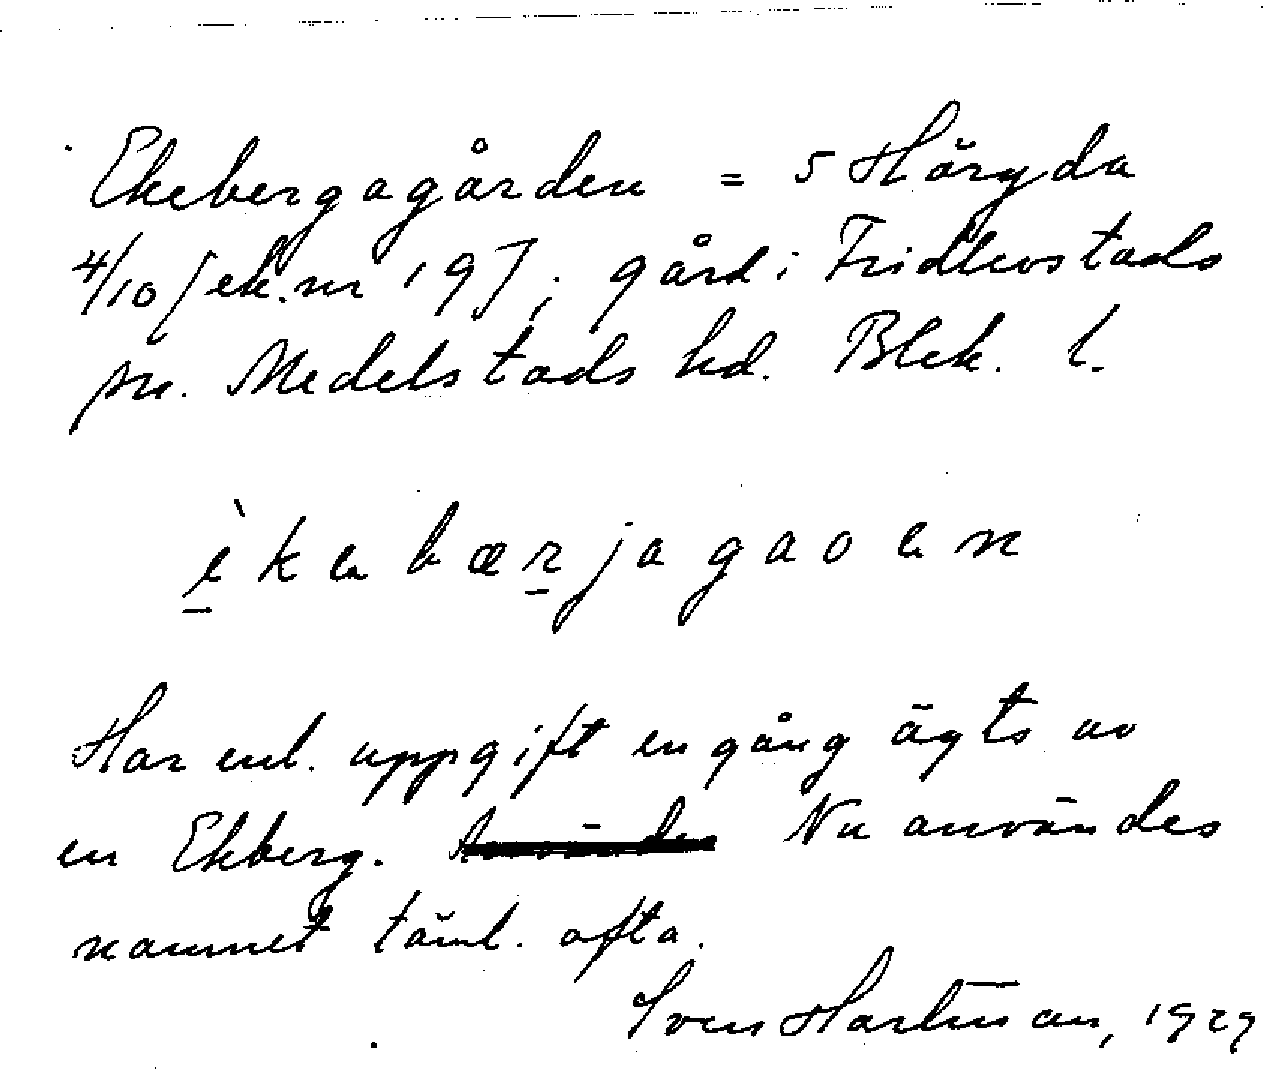 Ekebergagården = 5 Häryda
4/10 f ek.nr 197; gård i Fridlevstads
sn. Medelstads hd. Blek. l.
è̱ k e b æ ṟ j a g a o e n
Har enl. uppgift en gång ägts av
en Ekberg. Nu användes
namnet täml. ofta.
Sven Hartman, 1929